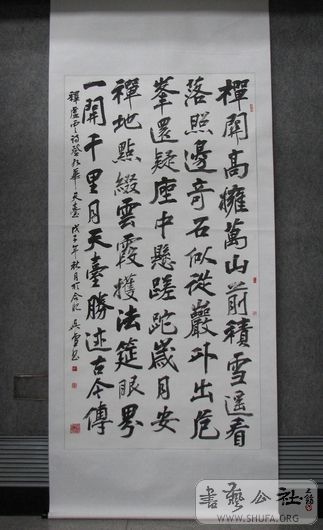 禪開高擁萬山前積雪遥看
落照邊奇石似從巖外出危
峯還疑座中懸蹉跎歲月安
禪地點綴雲霞擭法筵眼界
一開千里月天臺勝迹古今傳
釋虛雲詩登九華天臺 戊子年秋月於合肥 吳雪書
書藝公社
WWW.SHUFA.ORG